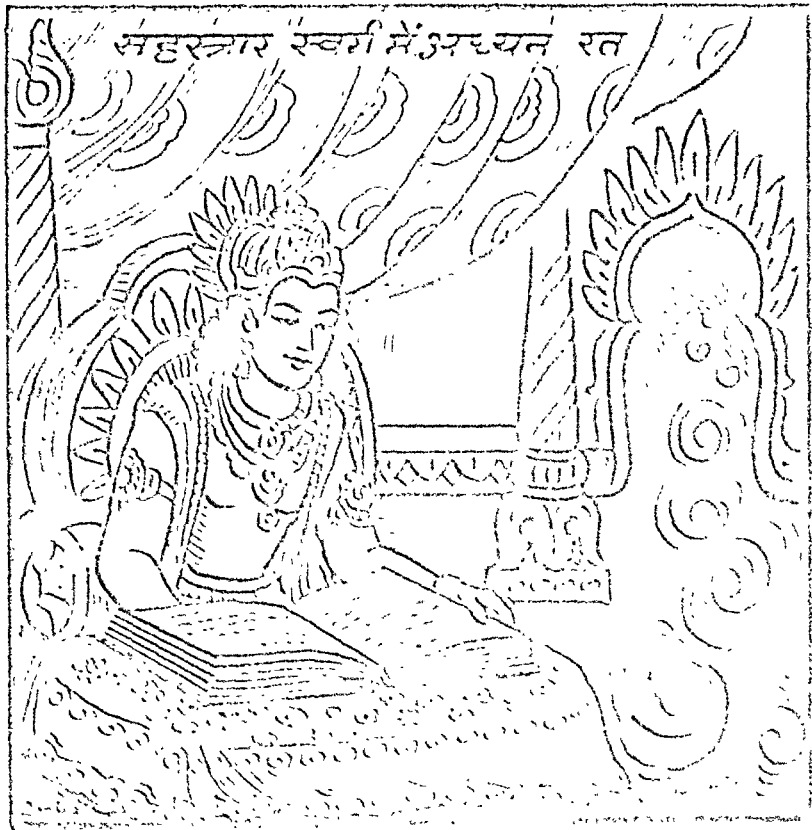 सहस्त्रार स्वर्ग में अध्यन रत